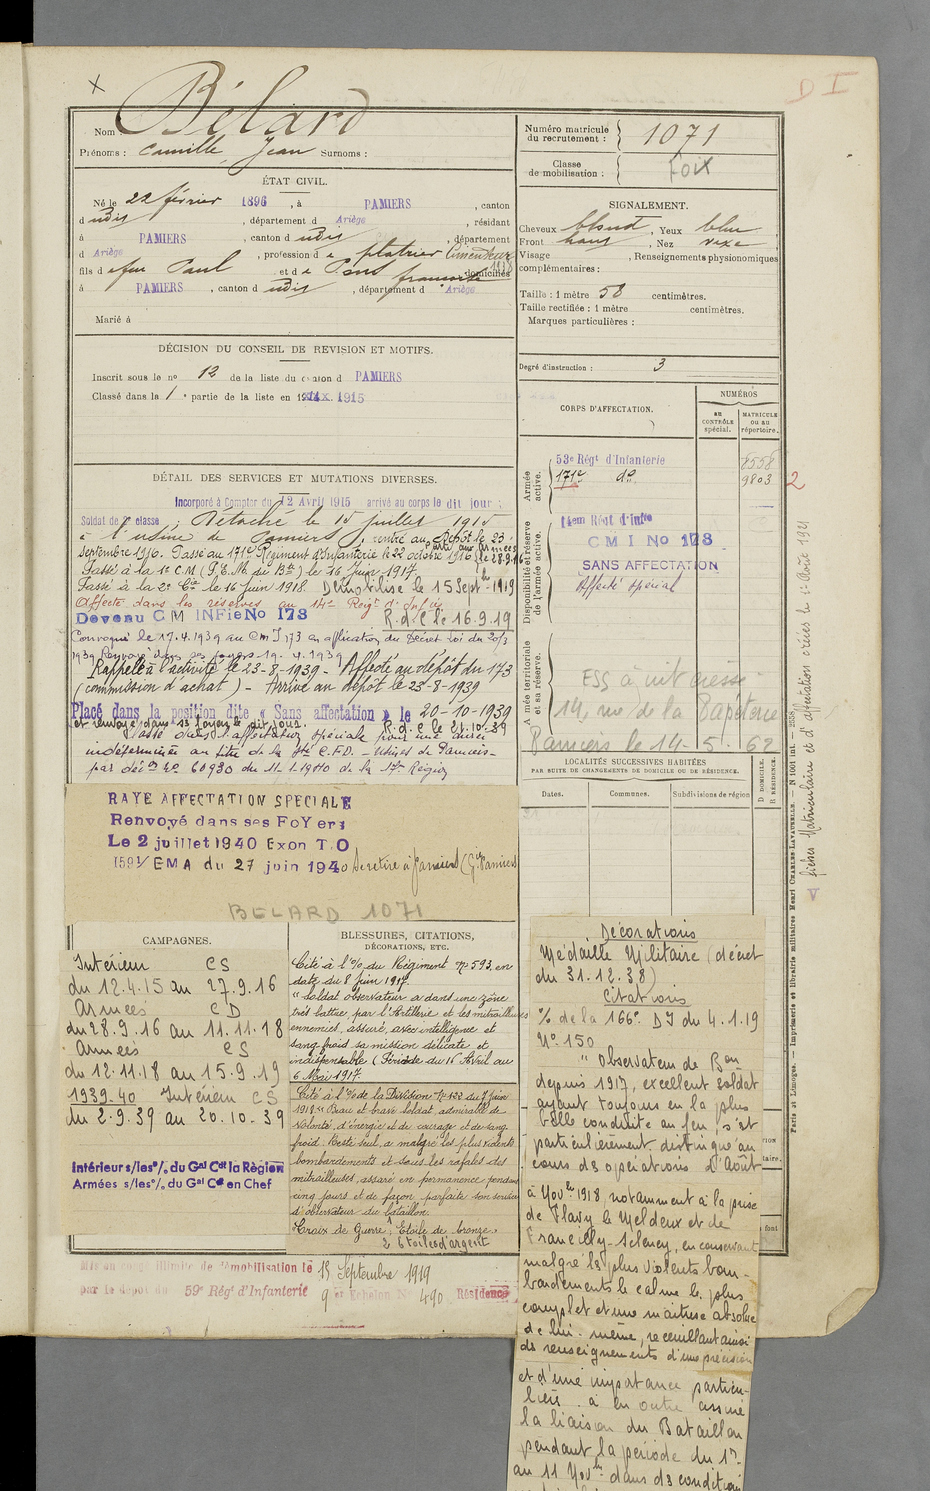 D I
Bélard
Nom
Prénoms : Camille, Jean Surnoms :
ÉTAT CIVIL.
Né le 22 février 1896, à PAMIERS, canton
d udis, département d Ariège, résidant
à PAMIERS, canton d udis, département
d Ariège, profession d e plâtrier Cimenteur
fils d e feu Paul et d e Pons françoise domiciliés
à PAMIERS, canton d udis, départem^t d Ariège
Marié à
DÉCISION DU CONSEIL DE REVISION ET MOTIFS.
Inscrit sous le n° 12 de la liste du canton d PAMIERS
Classé dans la 1 e partie de la liste en 1915
DÉTAIL DES SERVICES ET MUTATIONS DIVERSES.
Incorporé à Compter du 12 Avril 1915 arrivé au corps le dit jour ;
Soldat de 2e classe ; Détaché le 15 juillet 1915
à l'usine de Pamiers, rentré au Dépôt le 23
septembre 1916. Passé au 171e Régiment d'Infanterie le 22 octobre 1916 Parti aux Armées le 28.9.16
Passé à la 1e C.M (P.E.M. du B^on) le 16 Juin 1917
Passé à la 2e Cie le 16 juin 1918. Démobilisé le 15 Sept^bre 1919
Affecté dans les réserves au 14e Régt d'Infie
Devenu C M INFie No 173 R.d.C le 16.9.19
Convoqué le 17.4.1939 au CMI 173 en application du Décret Loi du 20/3
1939 Renvoyé dans ses foyers 19.4.1939
Rappelé à l'activité le 23-8-1939 - Affecté au dépôt du 173
(commission d'achat) - Arrivé au dépôt le 23-8-1939
Placé dans la position dite « Sans affectation » le 20-10-1939
et renvoyé dans ses foyers le dit jour. R.d.C le 21.10.39
Classé dans l'affectation spéciale pour une durée
indéterminée au titre de la Sté C.F.D. - Usines de Pamiers -
par décon No 60930 du 11-1-1940 de la 17e Région
RAYE AFFECTATION SPECIALE
Renvoyé dans ses FoYers
Le 2 juillet 1940 Exon T.O
1591/EMA du 27 juin 1940 Se retire à Pamiers (Gie Pamiers
BELARD 1071
CAMPAGNES.
Intérieur CS
du 12.4.15 au 27.9.16
Armées CD
du 28.9.16 au 11.11.18
Armées CS
du 12.11.18 au 15.9.19
1939-40 Intérieur CS
du 2.9.39 au 20.10.39
Intérieur s/les°/. du Gal Cdt la Région
Armées s/les°/. du Gal Cdt en Chef
BLESSURES, CITATIONS,
DÉCORATIONS, ETC.
Cité à l'O/ du Régiment N° 593 en
date du 8 juin 1917.
"Soldat observateur a dans une zône
très battue par l'Artillerie et les mitrailleuses
ennemies, assuré, avec intelligence et
sang froid sa mission délicate et
indispensable (Période du 16 Avril au
6 Mai 1917
Cité à l'O/ de la Division N° 132 du 7 Juin
1918 "Beau et brave soldat, admirable de
volonté, d'énergie et de courage et de sang
froid. Resté seul, a malgré les plus violents
bombardements et sous les rafales des
mitrailleuses, assuré en permanence pendant
cinq jours et de façon parfaite son service
d'observateur du bataillon.
Croix de Guerre, 1 Etoile de bronze.
2 Etoiles d'argent
Mis en congé illimité de démobilisation le 15 Septembre 1919
par le dépôt du 59e Régt d'Infanterie 9 et Echelon No 490 Résidence
Numéro matricule
du recrutement : 1071
Classe
de mobilisation : FOIX
SIGNALEMENT.
Cheveux blond, Yeux bleu
Front haut, Nez vexe
Visage , Renseignements physionomiques
complémentaires :
Taille : 1 mètre 58 centimètres.
Taille rectifiée : 1 mètre centimètres.
Marques particulières :
Degré d'instruction : 3
CORPS D'AFFECTATION.
NUMÉROS
au CONTRÔLE spécial.
MATRICULE ou au répertoire.
Armée active.
53e Régt d'Infanterie 8558
171e do 9803
2
Disponibilité et réserve de l'armée active.
14em Régt d'Infre
C M I No 173
SANS AFFECTATION
Affecté spécial
Armée territoriale et sa réserve.
ESS à intéressé
14, rue de la Papéterie
Pamiers le 14-5.62
LOCALITÉS SUCCESSIVES HABITÉES
PAR SUITE DE CHANGEMENTS DE DOMICILE OU DE RÉSIDENCE.
Dates. Communes. Subdivisions de région
D DOMICILE.
R RÉSIDENCE.
Décorations
Médaille Militaire (décret
du 31.12.38)
Citations
O/ de la 166e DI du 4.1.19
N° 150
"Observateur de Bon
depuis 1917, excellent soldat
ayant toujours eu la plus
belle conduite au feu s'est
particulièrement distingué au
cours des opérations d'Août
à Novbre 1918 notamment à la prise
de Plavy le Meldeux et de
Francilly-Selency, en conservant
malgré les plus violents bom-
bardements le calme le plus
complet et une maîtrise absolue
de lui-même, recueillant ainsi
des renseignements d'une précision
et d'une importance particu-
lière. a en outre assuré
la liaison du Bataillon
pendant la période du 17
au 11 Novbre dans des conditions
Paris et Limoges. — Imprimerie et librairie militaires Henri CHARLES-LAVAUZELLE. — N 1001 int. — 2558
fiches Matriculaire et d'affectation créées le 1er Août 1921
V